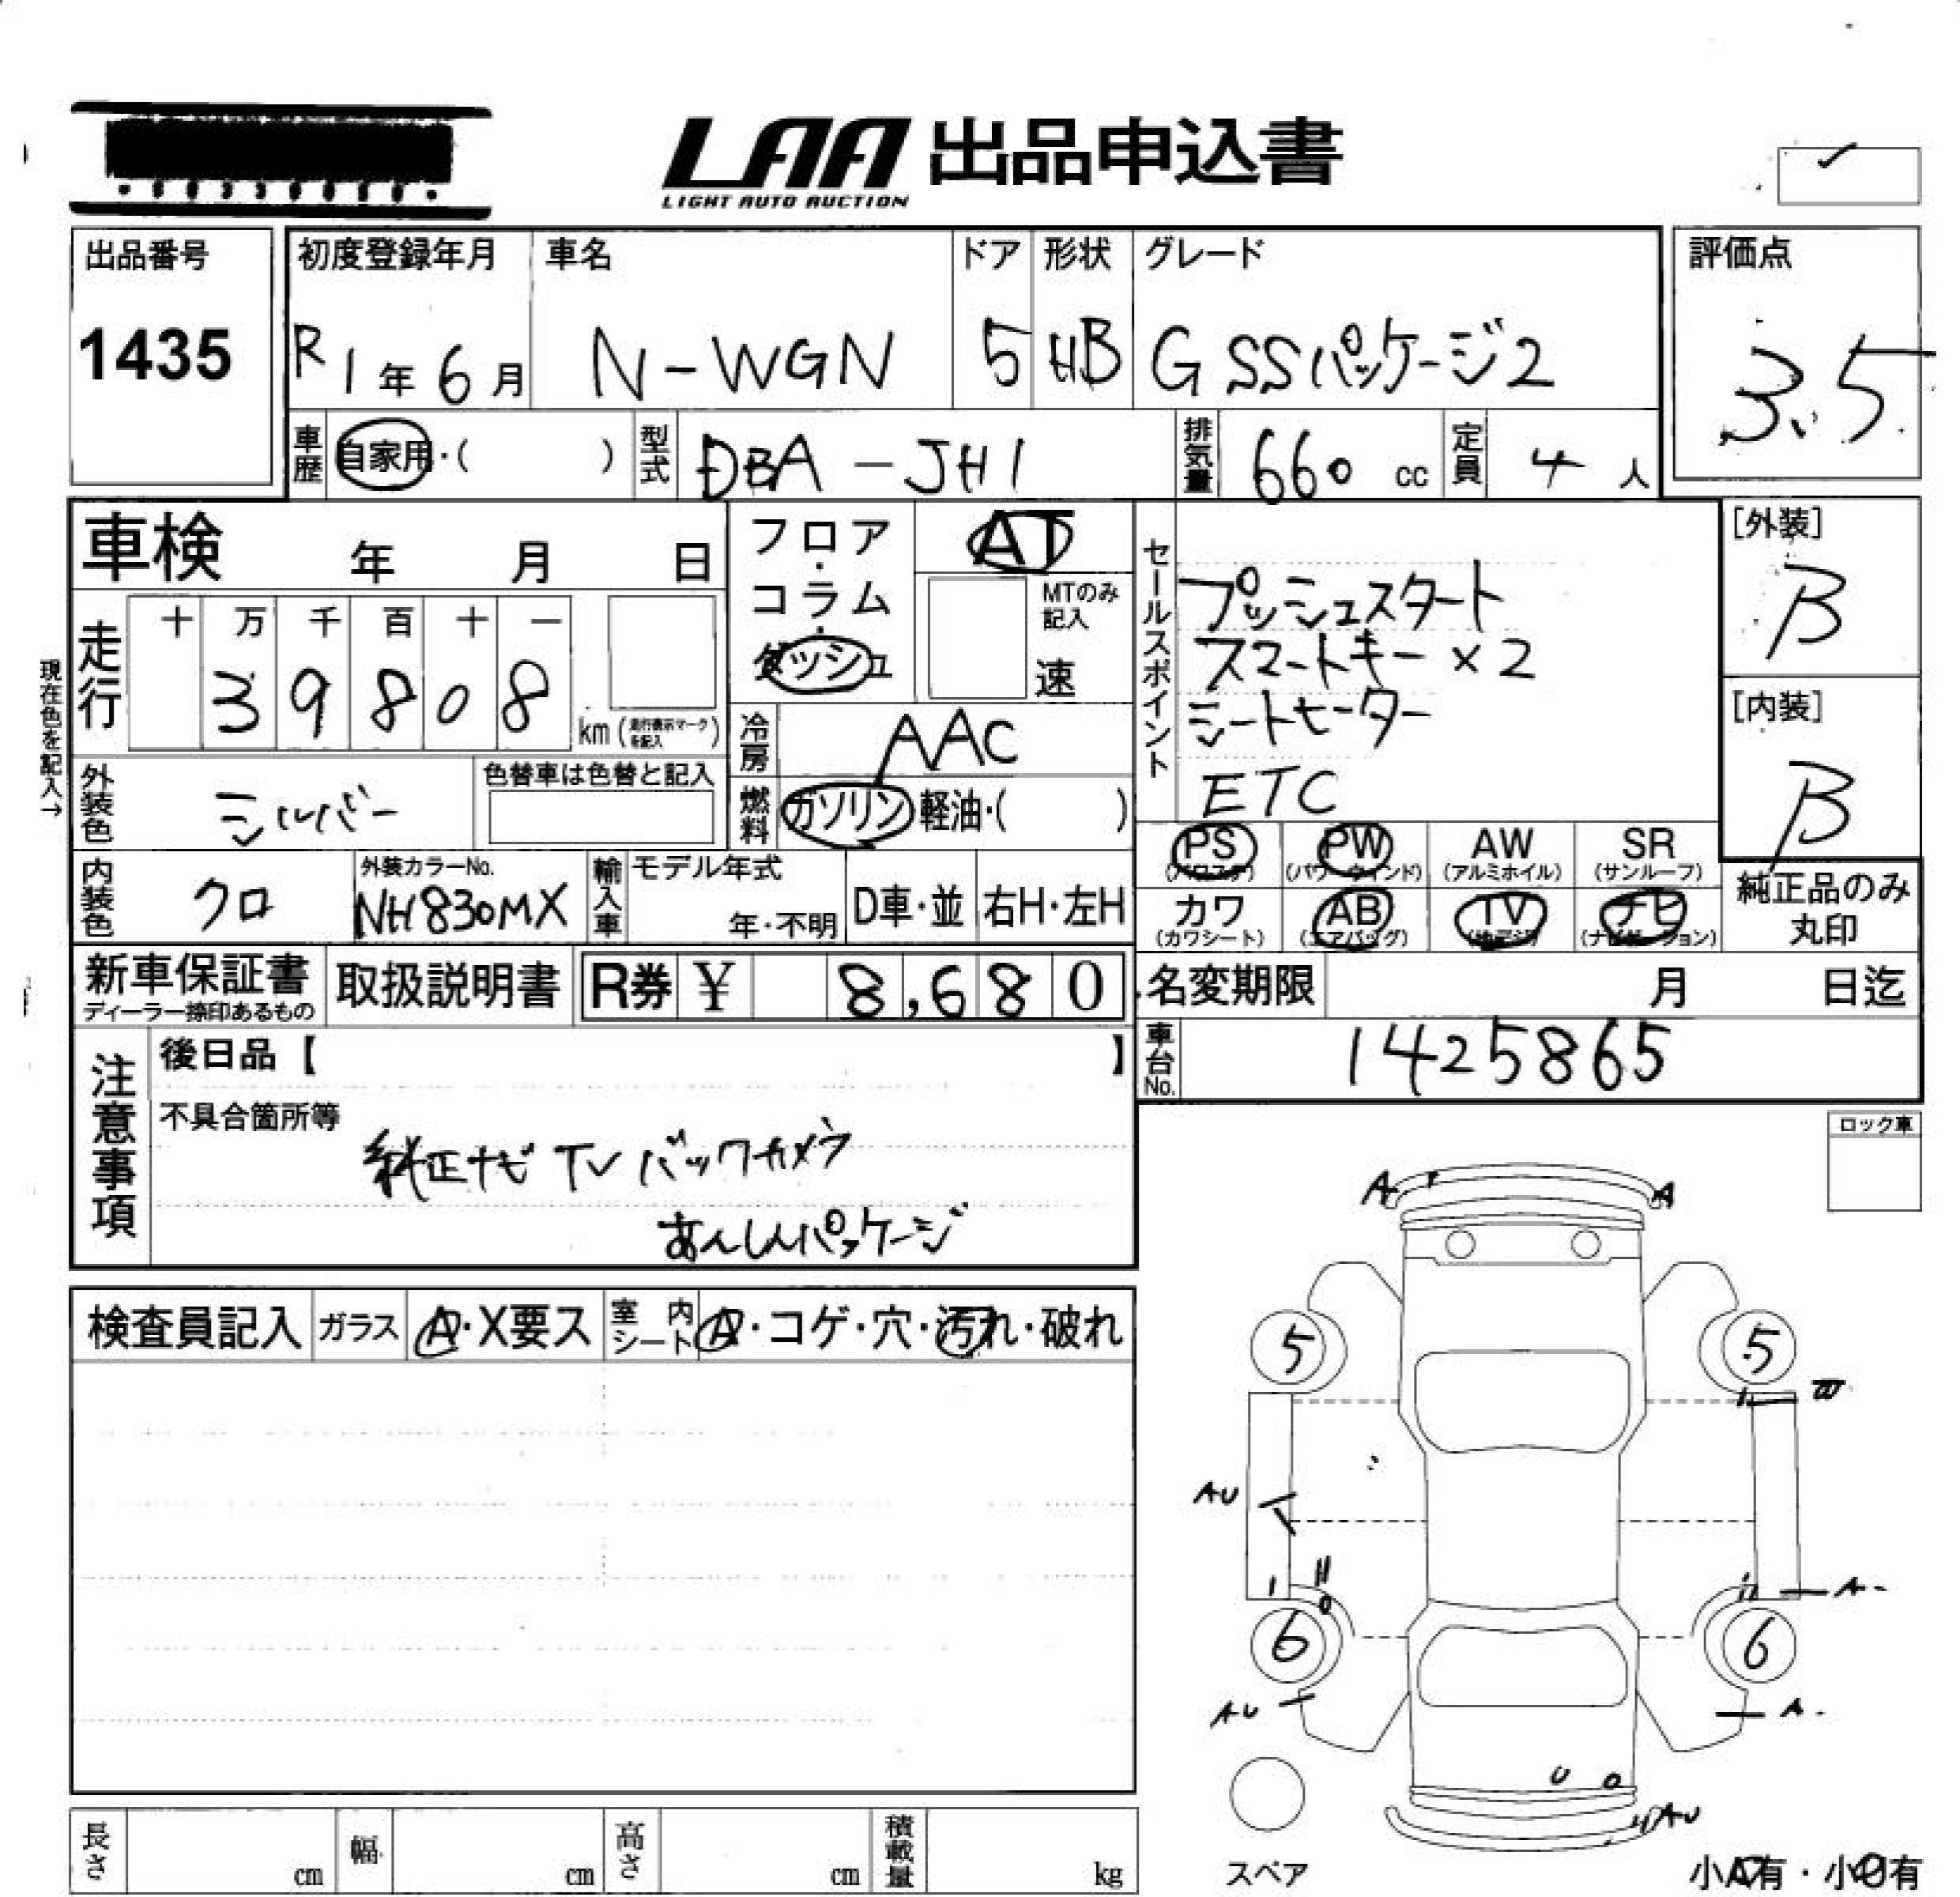 LAA 出品申込書
LIGHT AUTO AUCTION
出品番号
1435
初度登録年月
R1年6月
車名
N-WGN
ドア
5
形状
HB
グレード
G SSパッケージ2
評価点
3.5
車歴 自家用・( )
型式 DBA-JH1
排気量 660 cc
定員 4人
車検 年 月 日
走行
十 万 千 百 十 一
3 9 8 0 8
km(走行表示マークを記入)
現在色を記入→
外装色 シルバー
色替車は色替と記入
内装色 クロ
外装カラーNo.
NH830MX
フロア・コラム・ダッシュ
AT
MTのみ記入
速
冷房 AAC
燃料 ガソリン 軽油・( )
輸入車
モデル年式
年・不明
D車・並
右H・左H
セールスポイント
プッシュスタート
スマートキー×2
シートヒーター
ETC
[外装]
B
[内装]
B
PS (パワステ)
PW (パワーウインド)
AW (アルミホイル)
SR (サンルーフ)
カワ (カワシート)
AB (エアバッグ)
TV (地デジ)
ナビ (ナビゲーション)
純正品のみ丸印
新車保証書
ディーラー捺印あるもの
取扱説明書
R券 ¥ 8,680
名変期限 月 日迄
車台No. 1425865
注意事項
後日品【 】
不具合箇所等
純正ナビ TV バックカメラ
あんしんパッケージ
ロック車
検査員記入
ガラス A・X要ス
室内シート A・コゲ・穴・汚れ・破れ
A A
5 5
AU
A
6 6
AU A
U
AU
スペア
小A有・小U有
長さ cm
幅 cm
高さ cm
積載量 kg